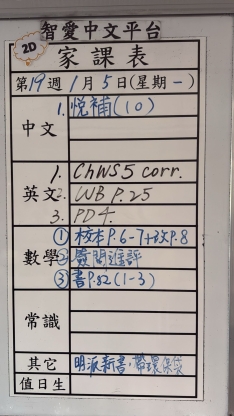 智愛中文平台
2D
家課表
第19週1月5日(星期一)
中文
1. 悅補(10)
英文
1. ChWS5 corr.
2. WB P.25
3. PD4.
數學
① 校本P.6-7+3文P.8
② 靈閱進評
③ 書P.82(1-3)
常識
其它
明派新書,帶環保袋
值日生